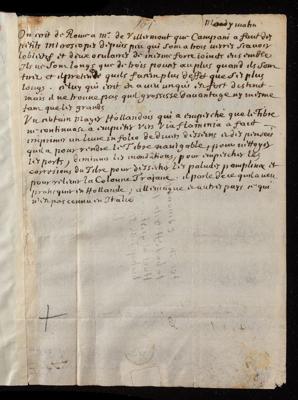 Mardy matin
On écrit de Rome a Mr. de Villermont que Campani a fait des
petits microscopes depuis peu qui sont a trois verres scavoir
lobiectif et deux oculaires de mesme force joints ensemble
Ils ne sont longs que de trois pouces au plus quand ils sont
tirez et il pretend quils facent plus deffet que les plus
longs. celuy qui écrit en a veu un qui est fort distinct
mais il ne trouve pas quil grossisse davantage ny mesme
tant que les grands
Un certain Mayer Hollandois qui a empesché que le Tibre
ne continuast a empieter vers Via flaminia a fait
imprimer un livre in folio de divers desseins et des pensées
quil a pour rendre le Tibre navigable, pour nettoyer
les ports, diminuer les inondations, pour empescher les
corrosions du Tibre pour dessecher les paludes pomptines et
pour relever la Colonne Trajane. il parle de ce quil a veu
pratiquer en Hollande, allemagne et autres pays et qui
n'est pas connu en Italie